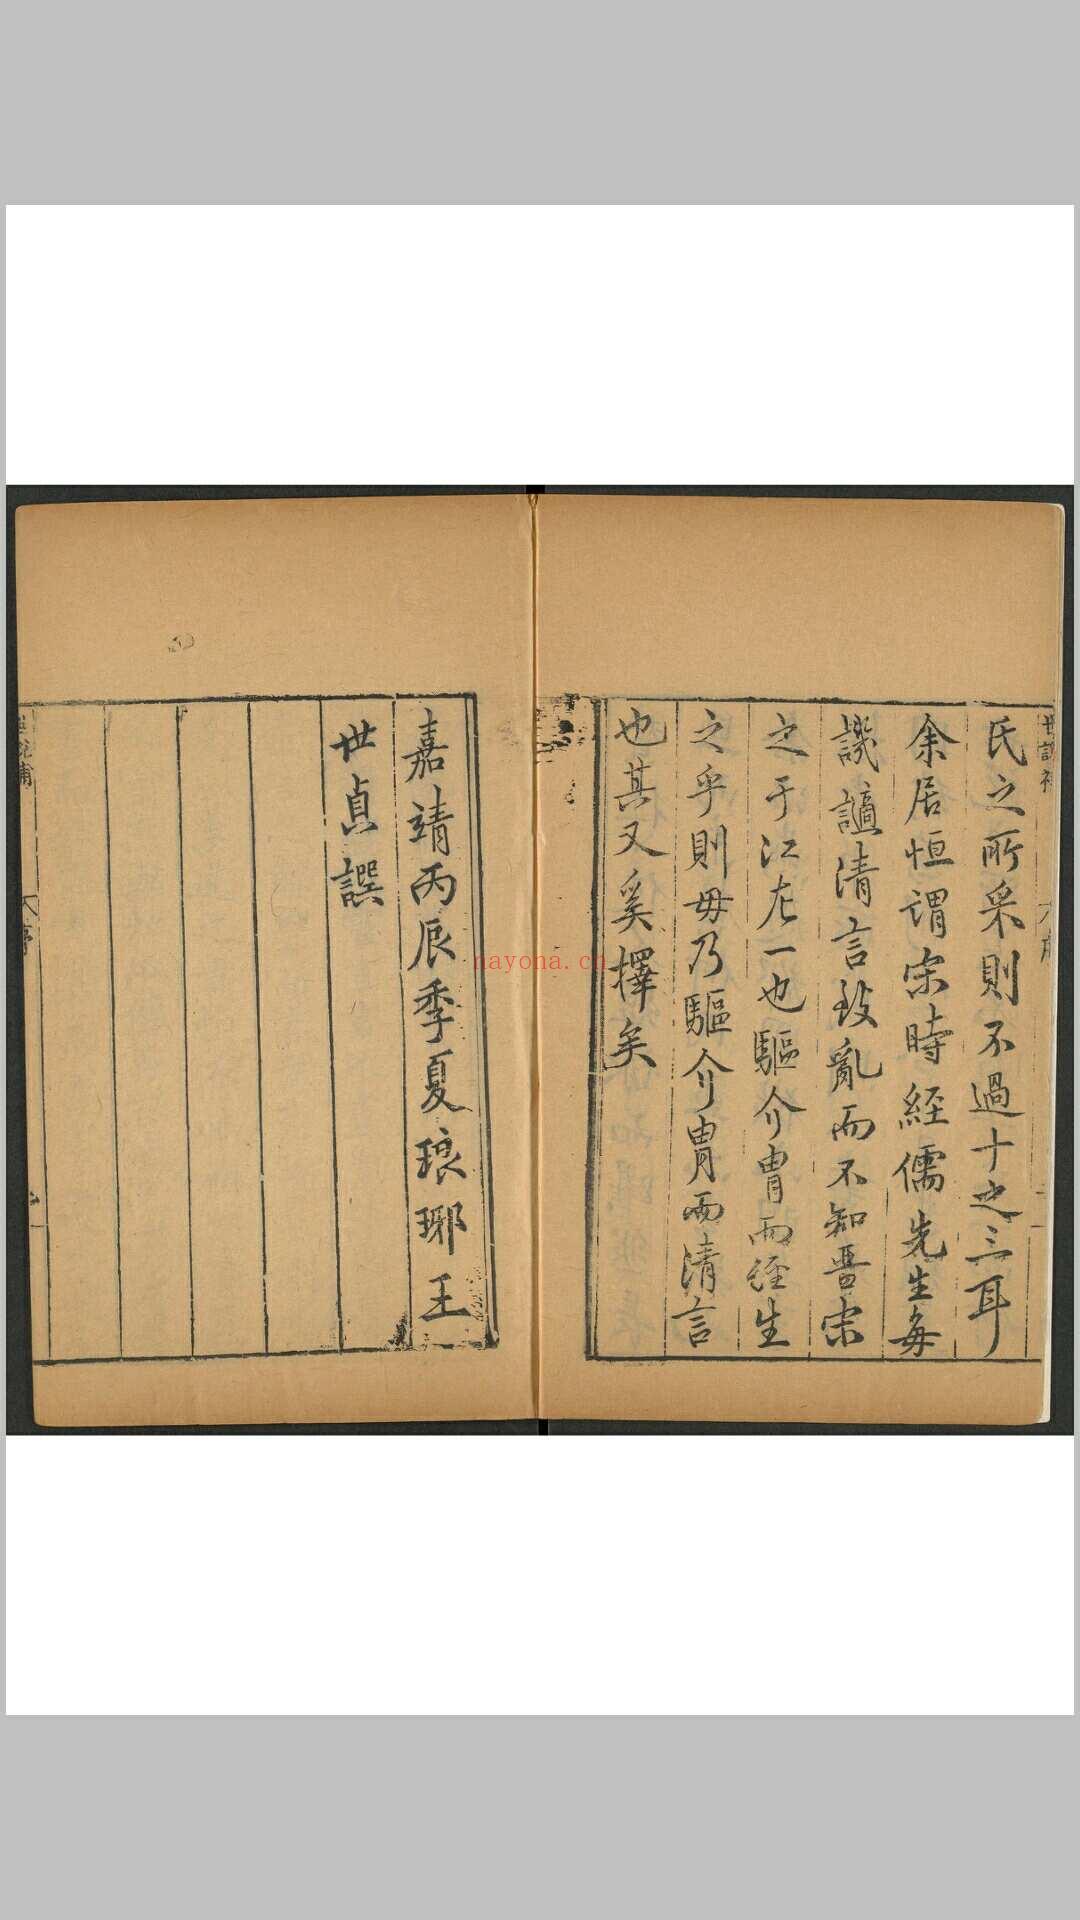 氏之所采則不過十之三耳
余居恒謂宋時經儒先生每
譏謫清言致亂而不知晉宋
之于江左一也驅介冑而經生
之乎則毋乃驅介冑而清言
也其又奚擇矣
嘉靖丙辰季夏琅琊王
世貞譔
nayona.cn